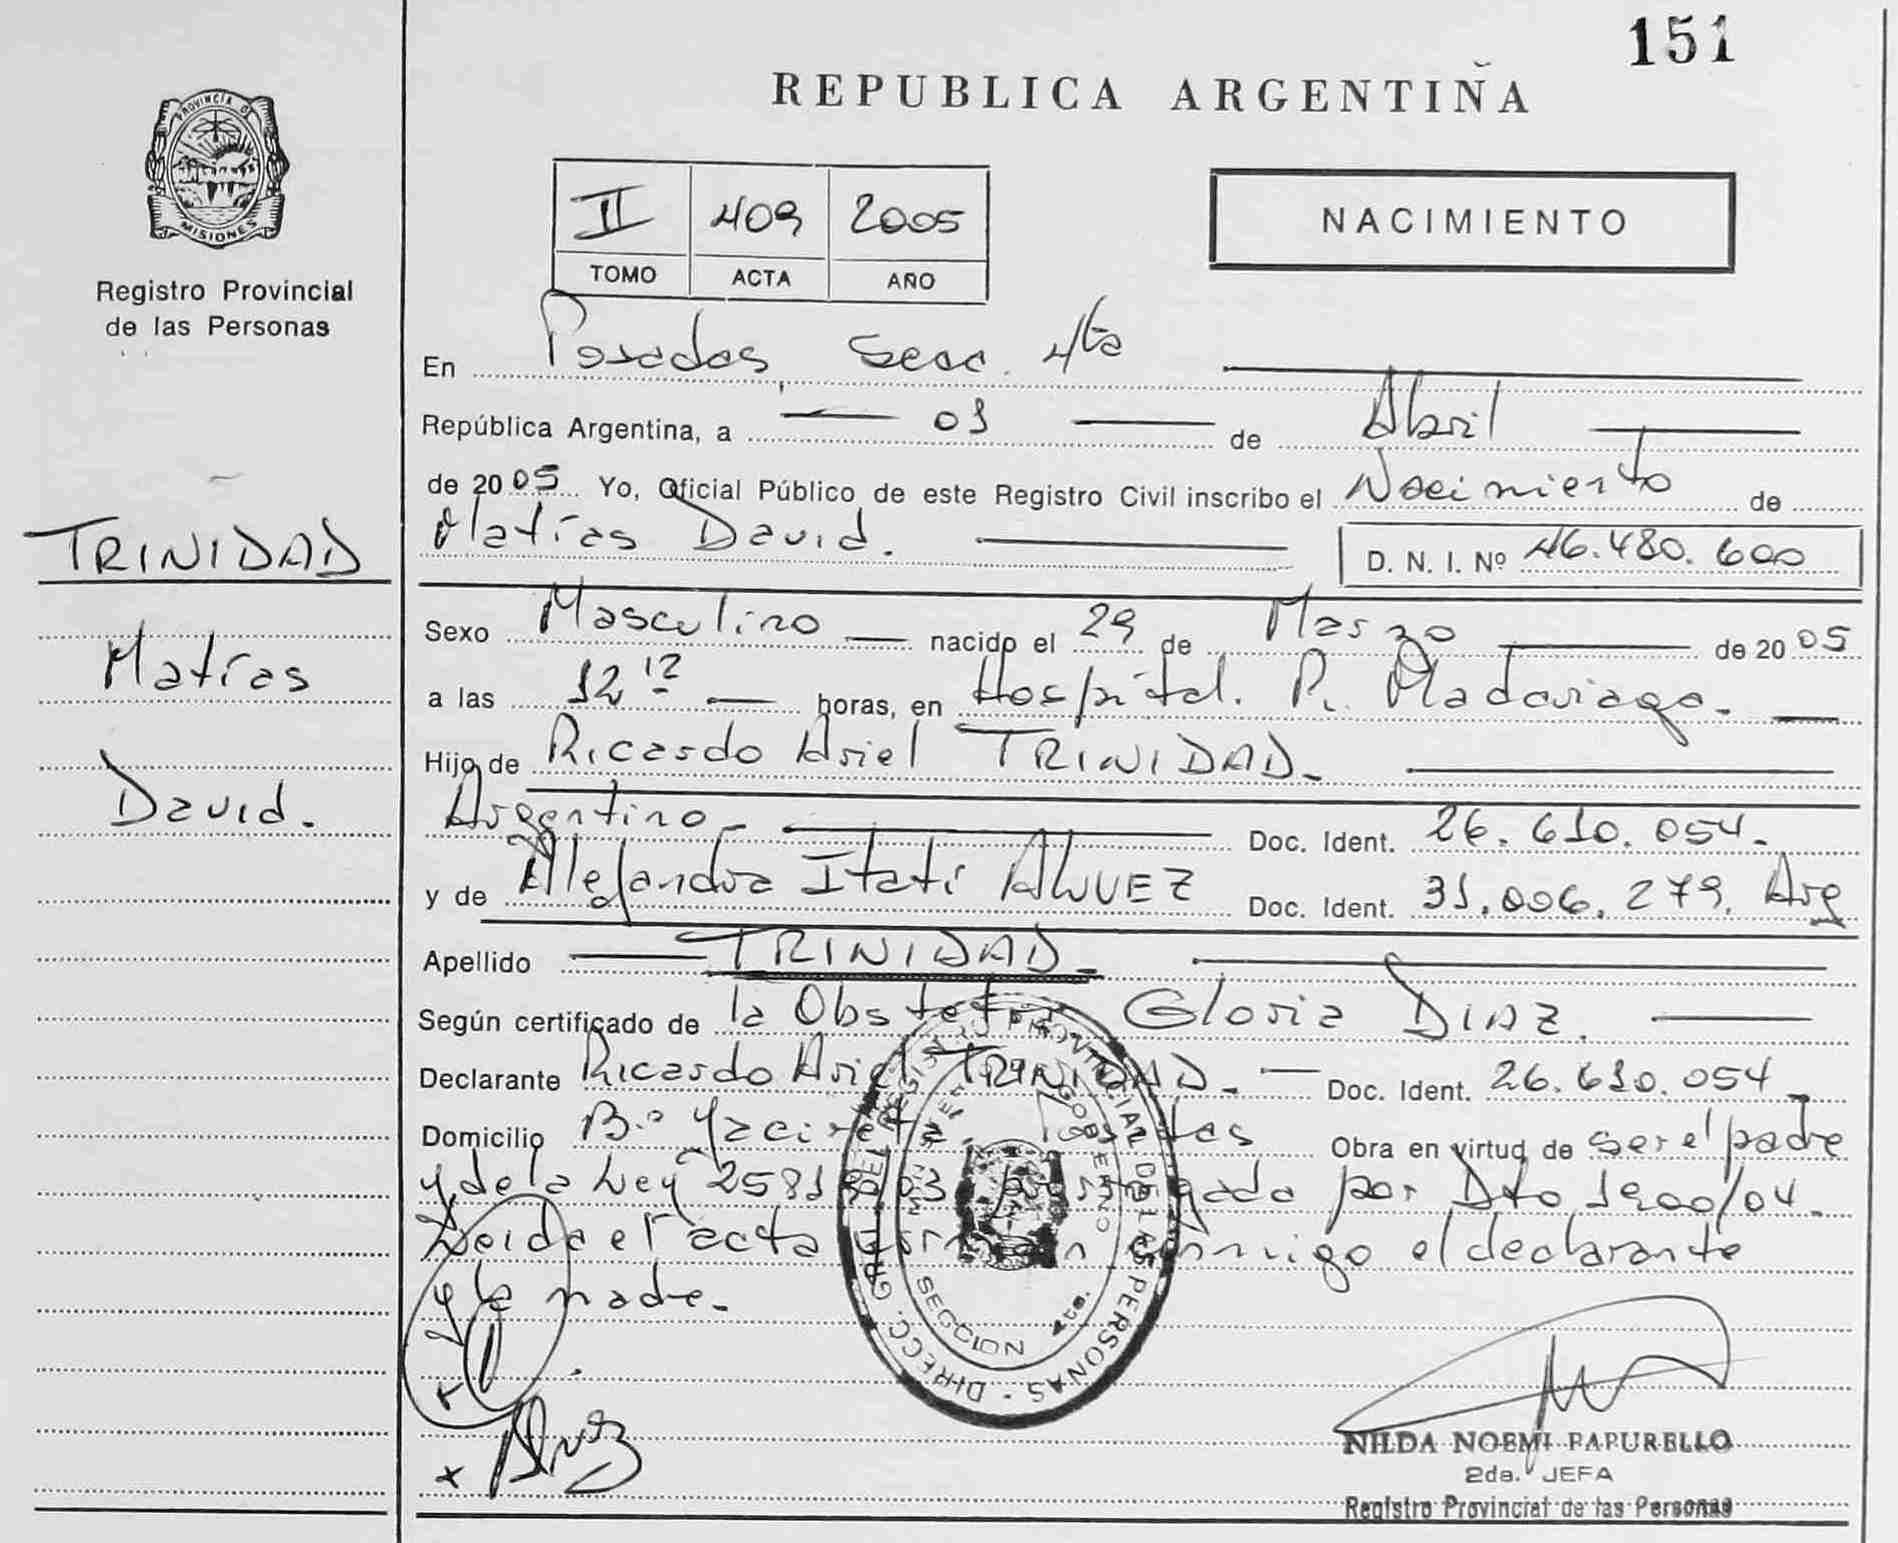 151
REPUBLICA ARGENTINA
PROVINCIA DE
MISIONES
Registro Provincial
de las Personas
II 409 2005
TOMO ACTA AÑO
NACIMIENTO
En Posadas, Secc. 4ta
República Argentina, a 01 de Abril
de 2005 Yo, Oficial Público de este Registro Civil inscribo el Nacimiento de
Matías David. D. N. I. Nº 46.480.600
TRINIDAD
Matías
David.
Sexo Masculino nacido el 29 de Marzo de 2005
a las 12 12 horas, en Hospital. R. Madariaga.
Hijo de Ricardo Ariel TRINIDAD.
Argentino Doc. Ident. 26.610.054.
y de Alejandra Itatí ALVEZ Doc. Ident. 31.006.279. Arg
Apellido TRINIDAD
Según certificado de la Obstetra Gloria DIAZ.
Declarante Ricardo Ariel TRINIDAD. Doc. Ident. 26.610.054
Domicilio B.º Yacireta. Obra en virtud de ser el padre
y de la Ley 25819/03 por Dto 1200/04.
Leida el acta conmigo el declarante
y la madre.
DIRECC. GRAL. DEL REGISTRO PROVINCIAL DE LAS PERSONAS
SECCION 4ta.
NILDA NOEMI PAPURELLO
2da. JEFA
Registro Provincial de las Personas